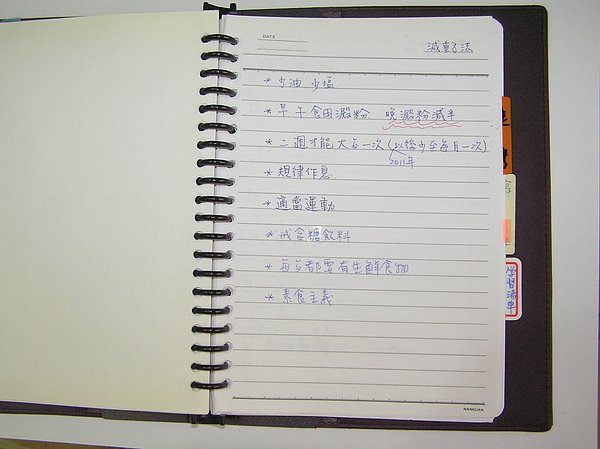 DATE
減重方法
* 少油 少鹽
* 早午食用澱粉 晚澱粉減半
* 二週才能大占一次(以後少至每月一次)
2011年
* 規律作息
* 適當運動
* 戒含糖飲料
* 每占都要有生鮮食物
* 素食主義
學習清單
NANKUAN